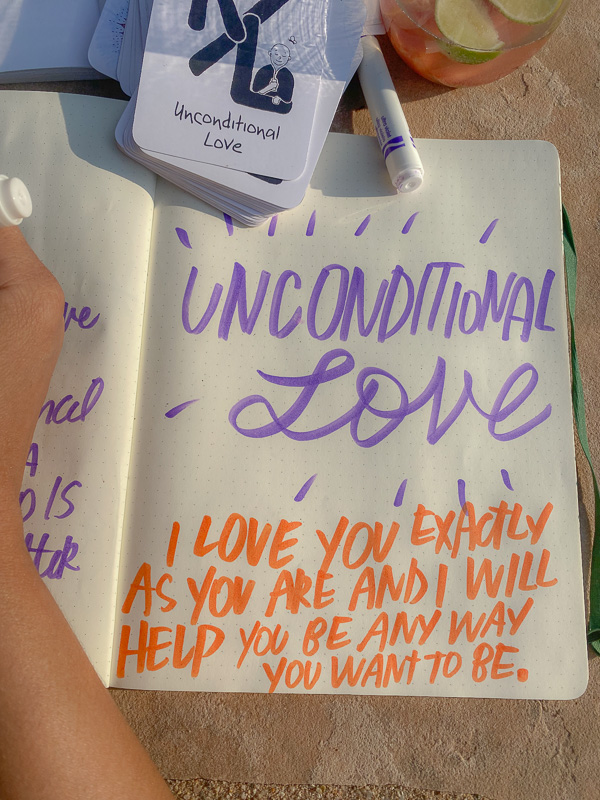 Unconditional
Love
UNCONDITIONAL
Love
I LOVE YOU EXACTLY
AS YOU ARE AND I WILL
HELP YOU BE ANY WAY
YOU WANT TO BE.
IS